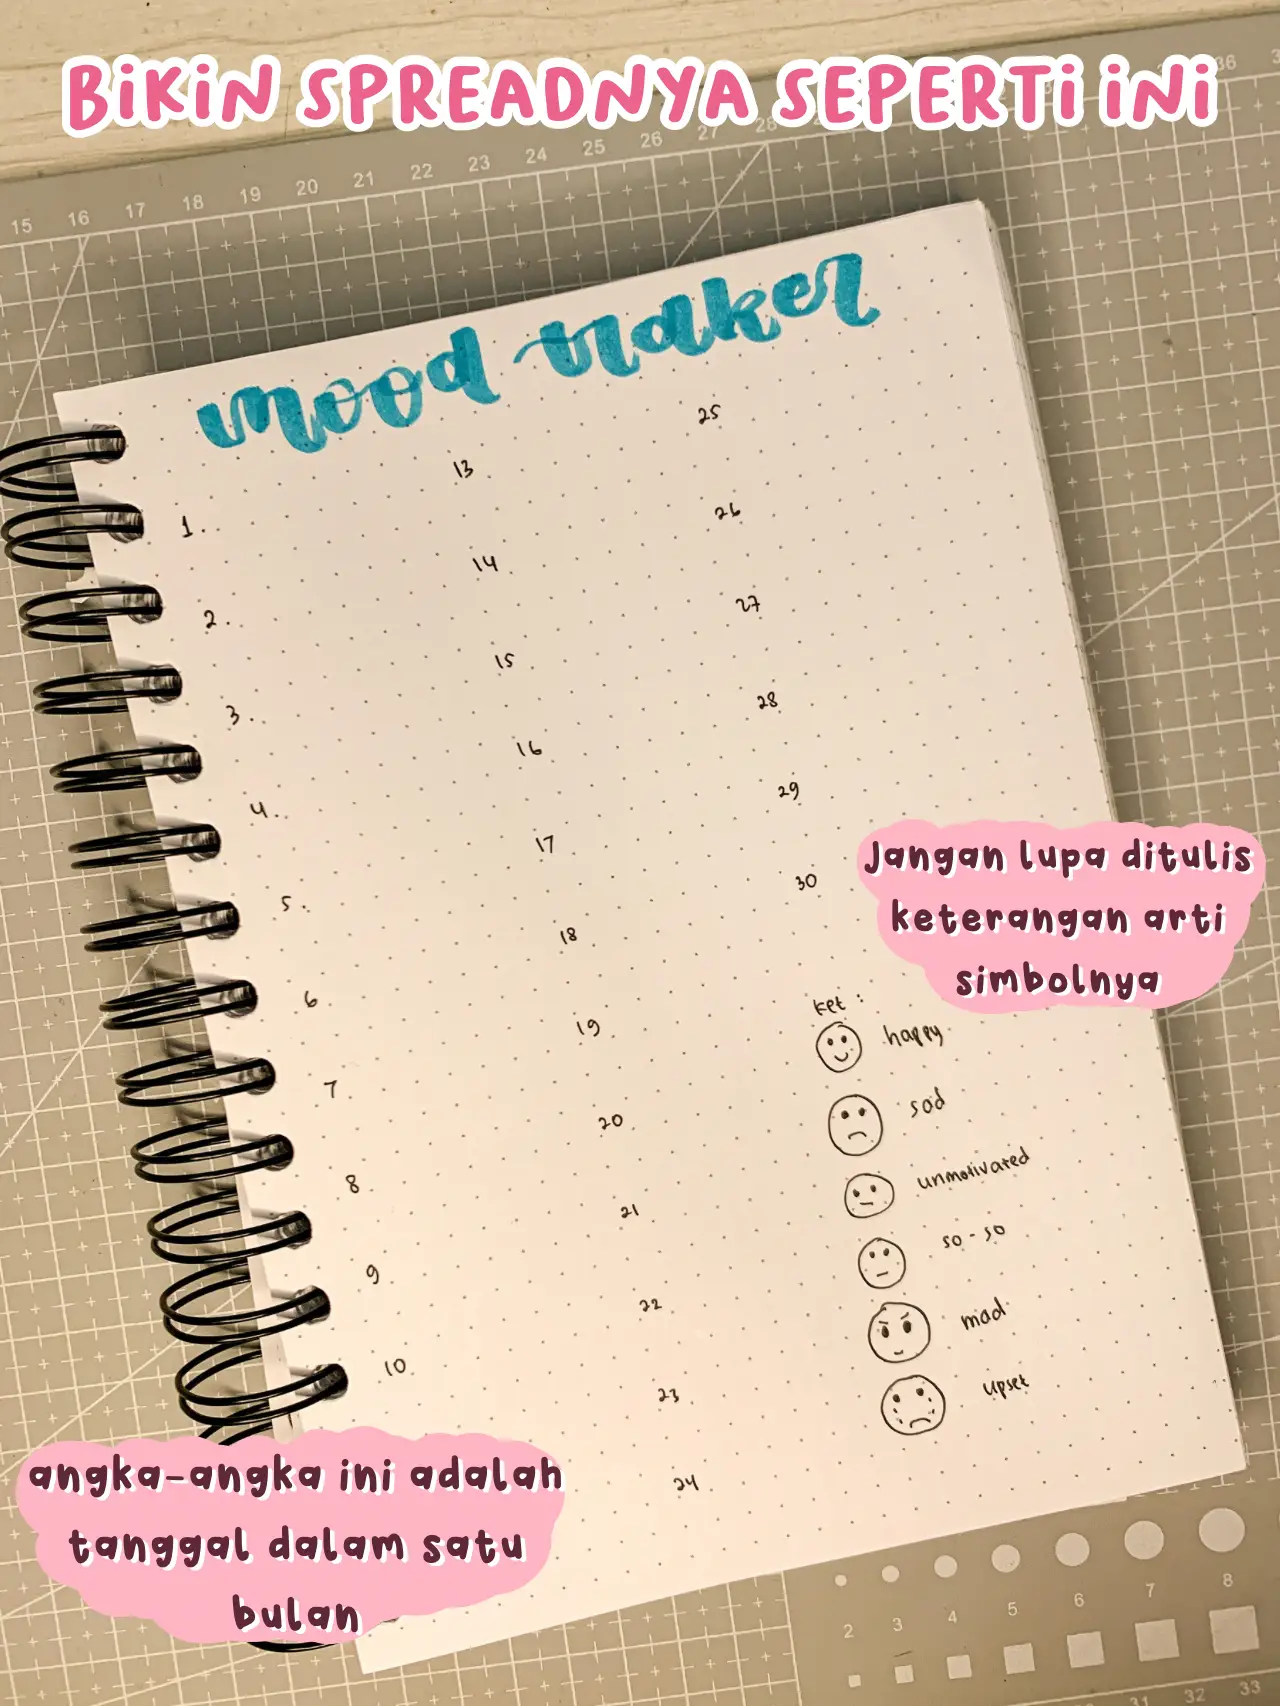 BiKiN SPREADNYA SEPERTi iNi
15 16 17 18 19 20 21 22 23 24 25 26 27 28 36
mood traker
1.
2.
3.
4.
5.
6
7
8
9
10
13
14
15
16
17
18
19
20
21
22
23
24
25
26
27
28
29
30
Jangan lupa ditulis
keterangan arti
simbolnya
ket :
happy
sad
unmotivated
so-so
mad
upset
angka-angka ini adalah
tanggal dalam satu
bulan
2 3 4 5 6 7 8
31 32 33